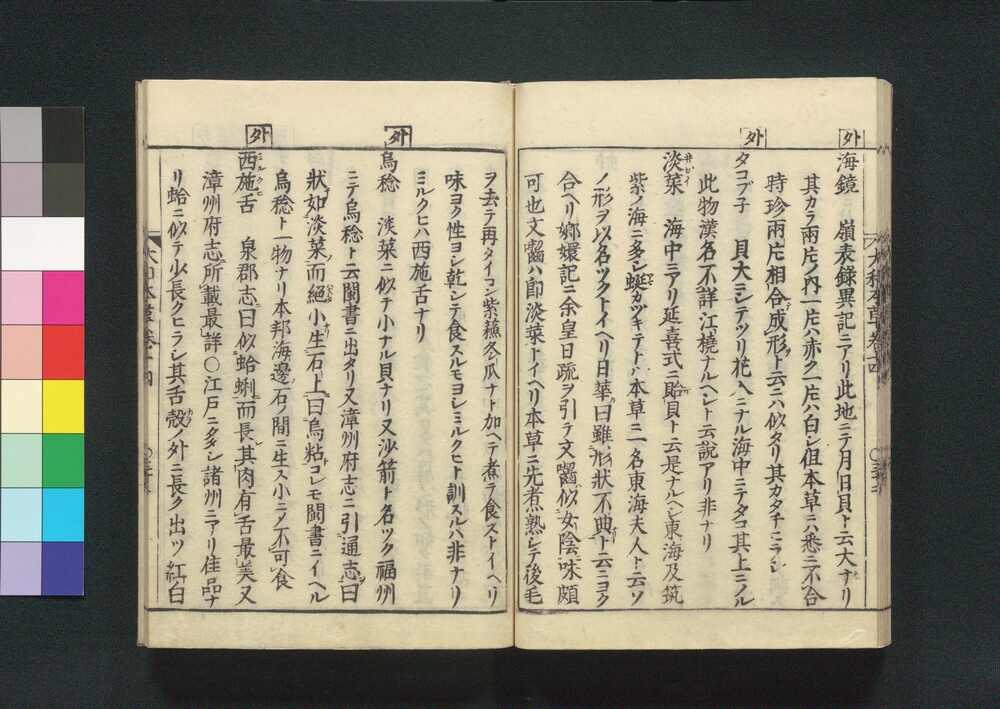 外
海鏡 嶺表録異記ニアリ此地ニテ月日貝ト云大サリ
其カラ兩片ノ内一片ハ赤ク一片ハ白シ但本草ニハ悉ニ不合
時珍兩片相合成形ト云ニハ似タリ其カタチニラシ
外
タコブ子 貝大ニシテツリ花入ニナル海中ニテタコ其上ニノル
此物漢名不詳江橈ナルヘシト云説アリ非ナリ
淡菜 海中ニアリ延喜式ニ貽貝ト云是ナルヘシ東海及筑
紫ノ海ニ多シ蜒カツキテトル本草ニ一名東海夫人ト云ソ
ノ形ヲ以名ツクトイヘリ日華曰雖形狀不典ト云ニヨク
合ヘリ嫏嬛記ニ余皇日疏ヲ引テ文䘆似女陰味頗
可也文䘆ハ即淡菜トイヘリ本草ニ先煮熟シテ後毛
ヲ去テ再タイコン紫蘓冬瓜ナト加ヘテ煮テ食ストイヘリ
味ヨク性ヨシ乾シテ食スルモヨシミルクヒト訓スルハ非ナリ
ミルクヒハ西施舌ナリ
外
烏稔 淡菜ニ似テ小ナル貝ナリ又沙箭ト名ツク福州
ニテ烏稔ト云閩書ニ出タリ又漳州府志ニ引通志曰
狀如淡菜而絕小生石上曰烏粘コレモ閩書ニイヘル
烏稔ト一物ナリ本邦海邊石ノ間ニ生ス小ニノ不可食
外
西施舌 泉郡志曰似蛤蜊而長其肉有舌最美又
漳州府志所載最詳〇江戸ニ多シ諸州ニアリ佳品ナ
リ蛤ニ似テ少長クヒラシ其舌殻ノ外ニ長ク出ツ紅白
大和本草卷十四
大和本草卷十四